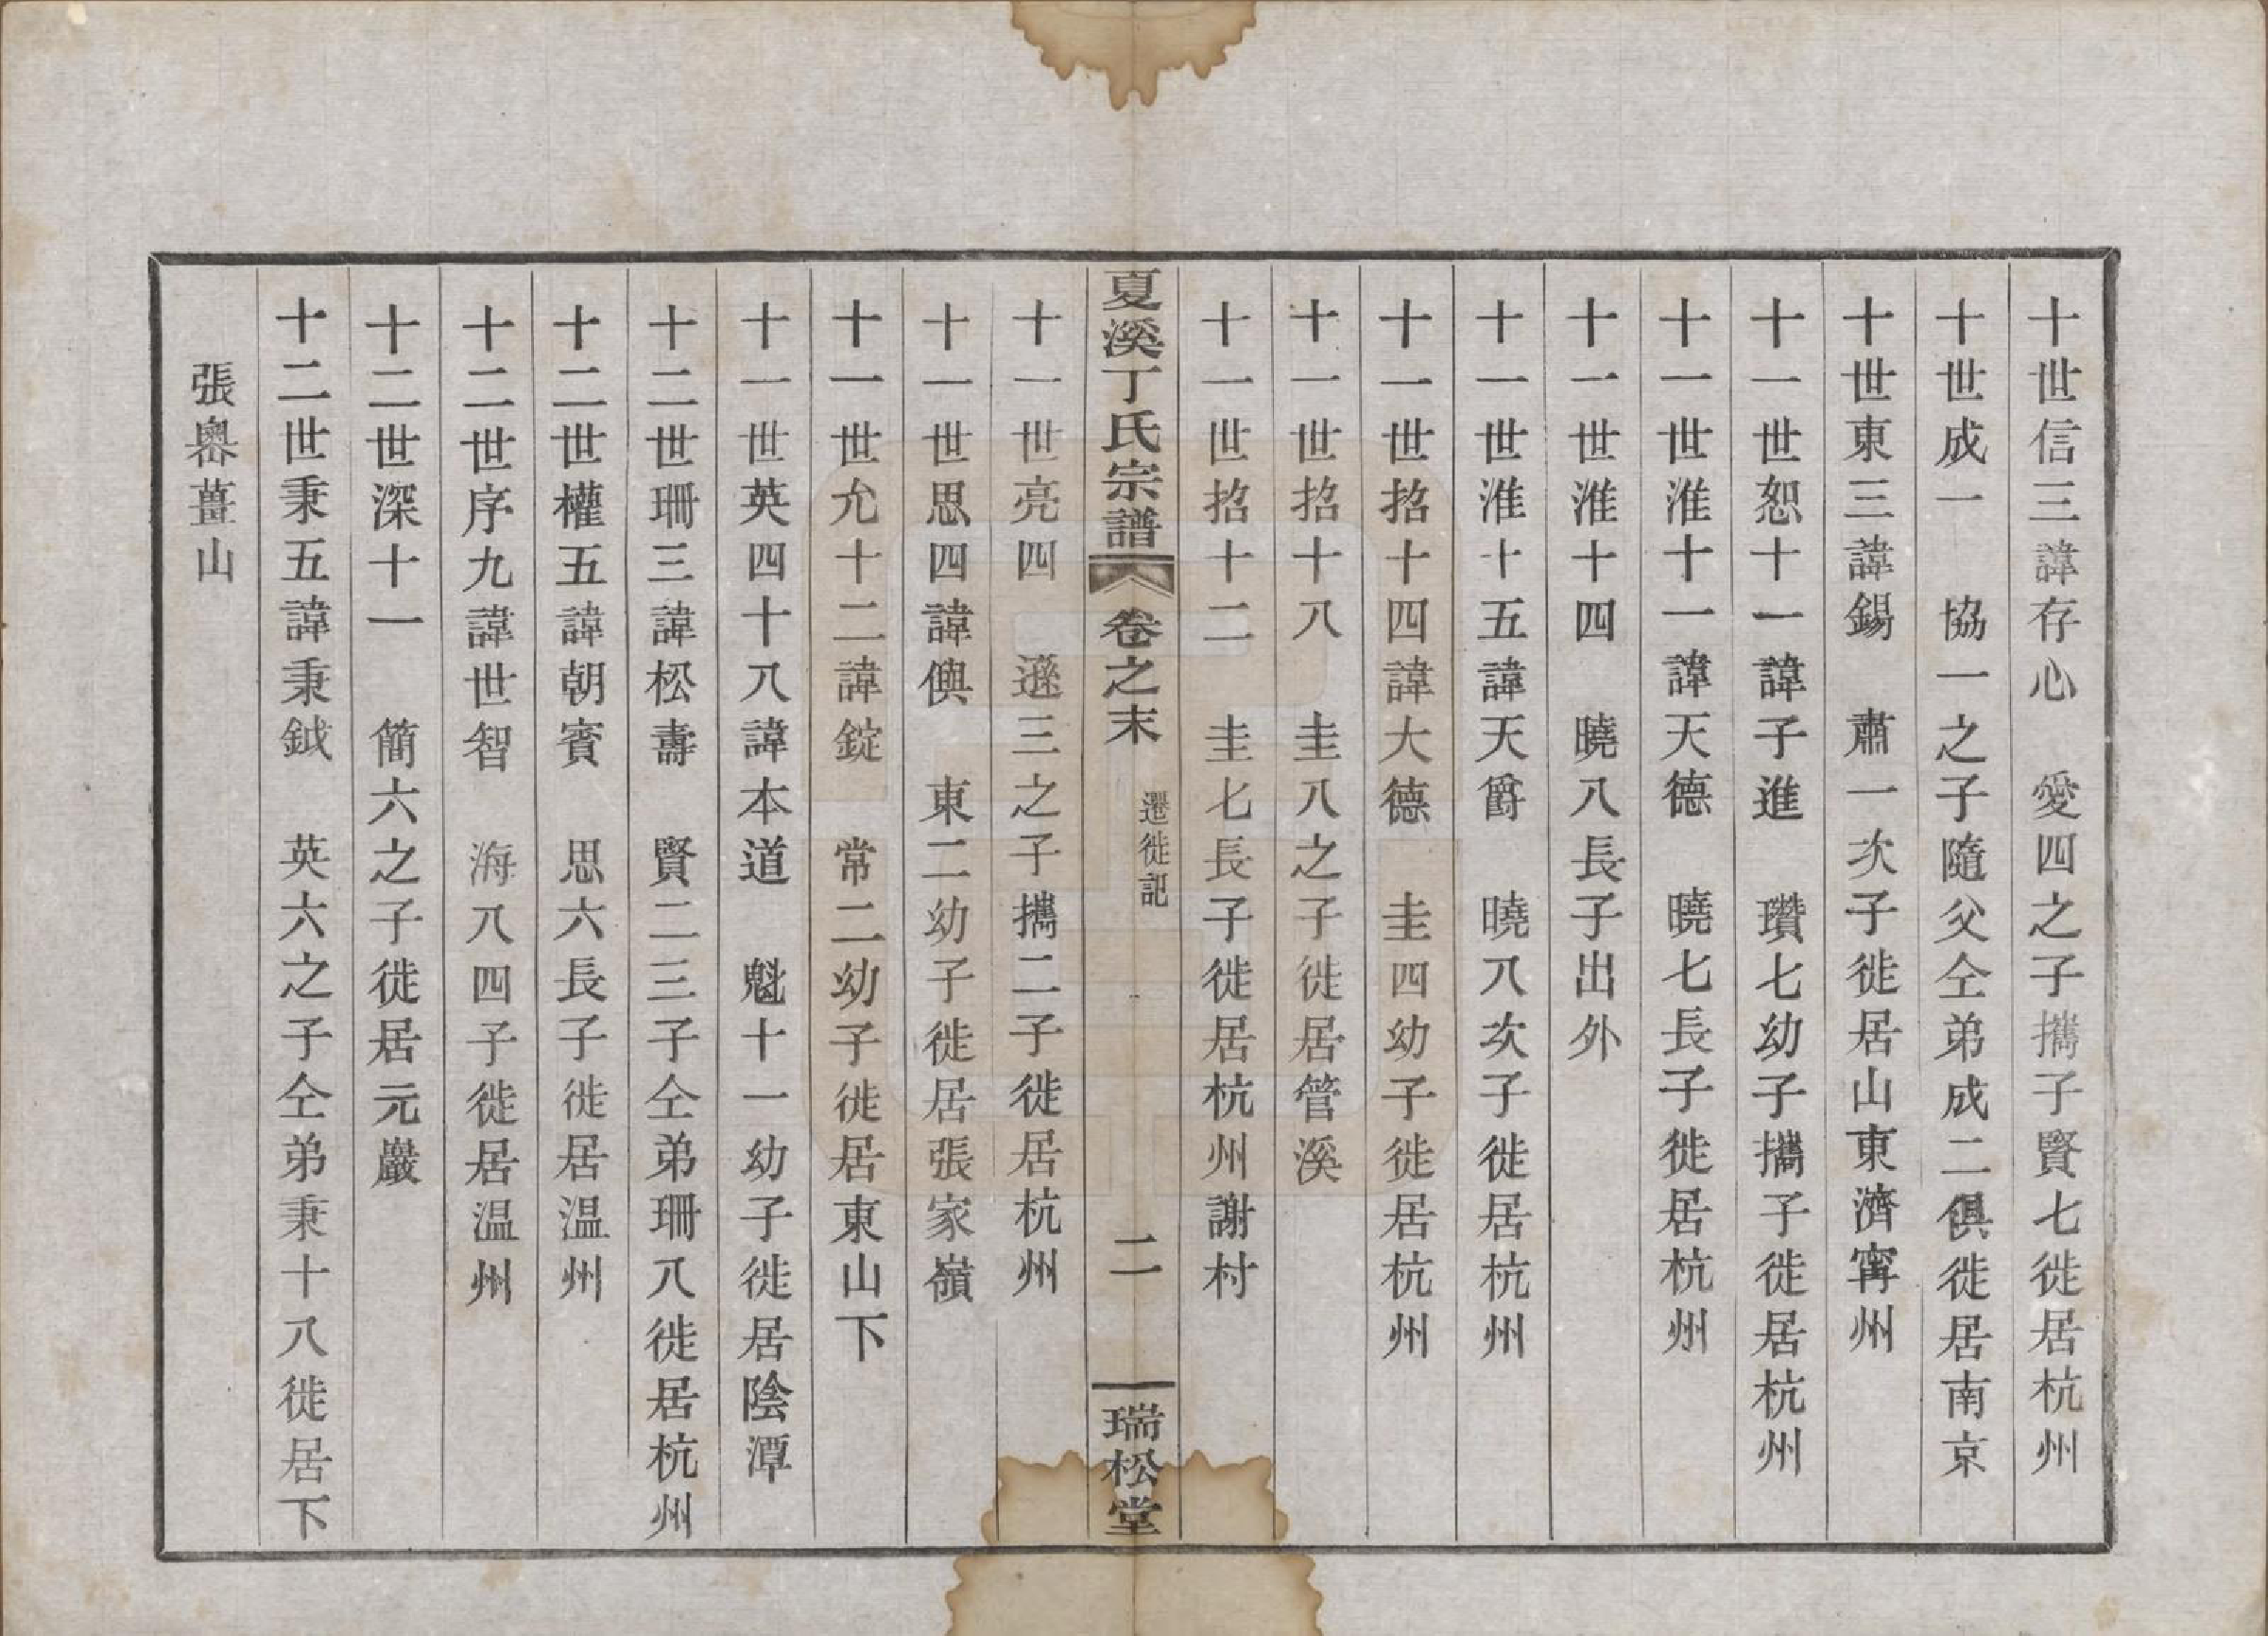 十世信三諱存心　愛四之子攜子賢七徙居杭州
十世成一　協一之子隨父仝弟成二俱徙居南京
十世東三諱錫　肅一次子徙居山東濟甯州
十一世恕十一諱子進　瓚七幼子攜子徙居杭州
十一世淮十一諱天德　曉七長子徙居杭州
十一世淮十四　曉八長子出外
十一世淮十五諱天爵　曉八次子徙居杭州
十一世招十四諱大德　圭四幼子徙居杭州
十一世招十八　圭八之子徙居管溪
十一世招十二　圭七長子徙居杭州謝村
夏溪丁氏宗譜　卷之末　遷徙記　二　瑞松堂
十一世亮四　遜三之子攜二子徙居杭州
十一世思四諱僎　東二幼子徙居張家嶺
十一世允十二諱錠　常二幼子徙居東山下
十一世英四十八諱本道　魁十一幼子徙居陰潭
十二世珊三諱松壽　賢二三子仝弟珊八徙居杭州
十二世權五諱朝賓　思六長子徙居温州
十二世序九諱世智　海八四子徙居温州
十二世深十一　簡六之子徙居元巖
十二世秉五諱秉鉞　英六之子仝弟秉十八徙居下
張嶴薑山